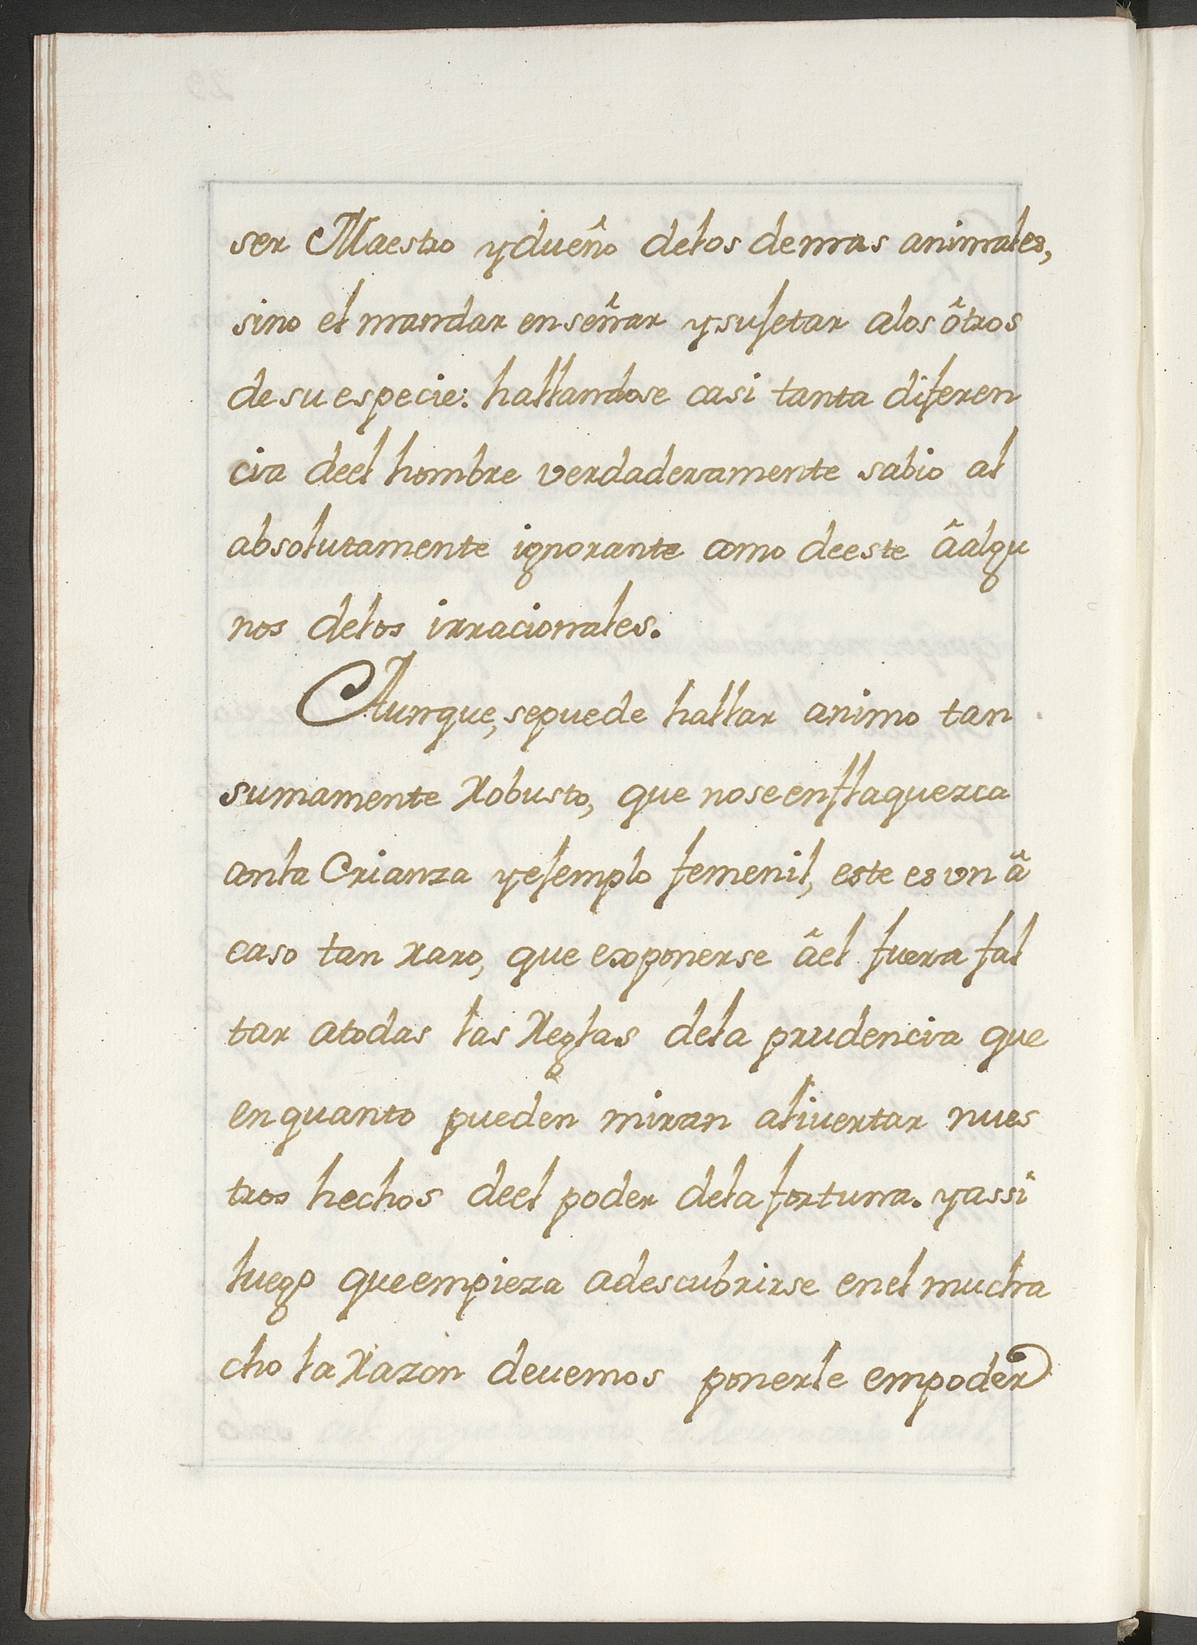 ser Maestro ydueño delos demas animales,
sino el mandar enseñar ysujetar alos ôtros
desuespecie: hallandose casi tanta diferen
cia deel hombre verdaderamente sabio al
absolutamente ignorante como deeste âalgu
nos delos irracionales.
Aunque, sepuede hallar animo tan
sumamente Robusto, que noseenflaquezca
conla Crianza yejemplo femenil, este es vn â
caso tan raro, que exponerse âel fuera fal
tar atodas las Reglas dela prudencia que
enquanto pueden miran alivertar nues
tros hechos deel poder dela fortuna. yassi
luego queempieza adescubrirse enel mucha
cho la Razon devemos ponerle empoder